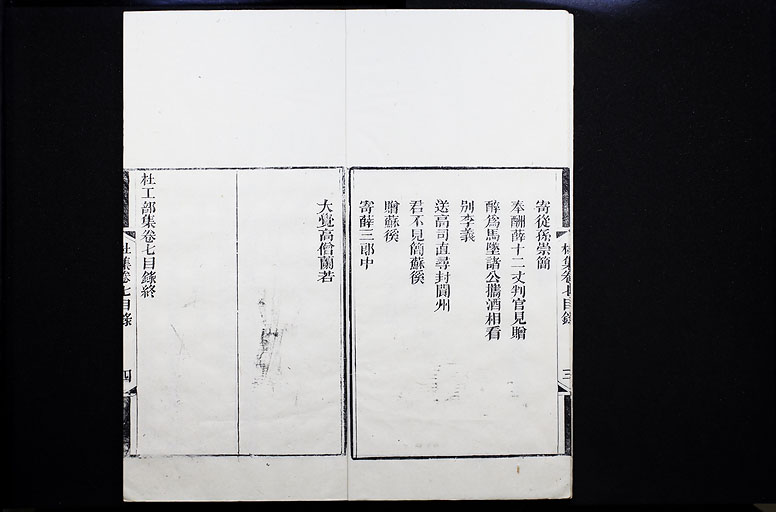 寄從孫崇簡
奉酬薛十二丈判官見贈
醉爲馬墜諸公攜酒相看
別李義
送高司直尋封閬州
君不見簡蘇徯
贈蘇徯
寄薛三郎中
大覺高僧蘭若
杜工部集卷七目錄終
杜集卷七目錄
三
杜集卷七目錄
四